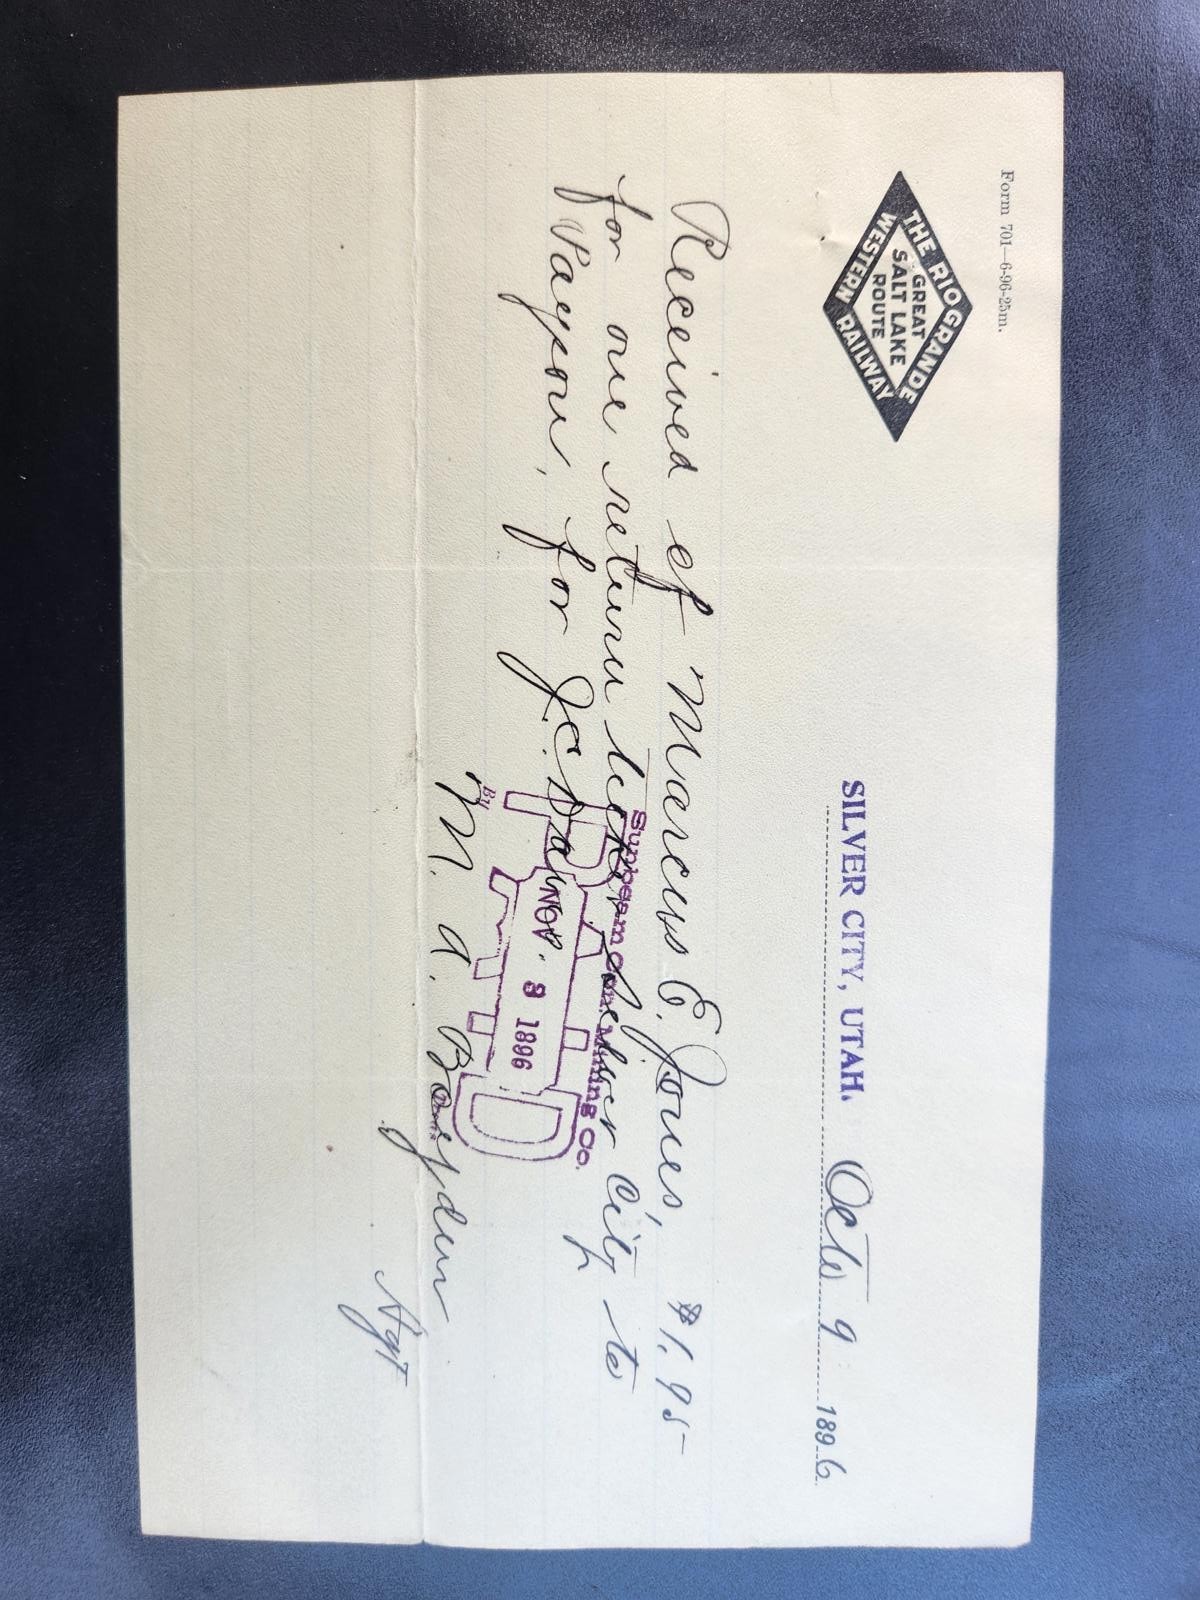 Form 701—6-96-25m.
THE RIO GRANDE
GREAT
SALT LAKE
ROUTE
WESTERN RAILWAY
SILVER CITY, UTAH. Octo 9 1896.
Received of Marcus E. Jones, $1.95
for one return ticket Silver City to
Payson, for J.C.
M. A. Boyden
Agt
Sunbeam Con. Mining Co.
PAID
NOV. 9 1896
By